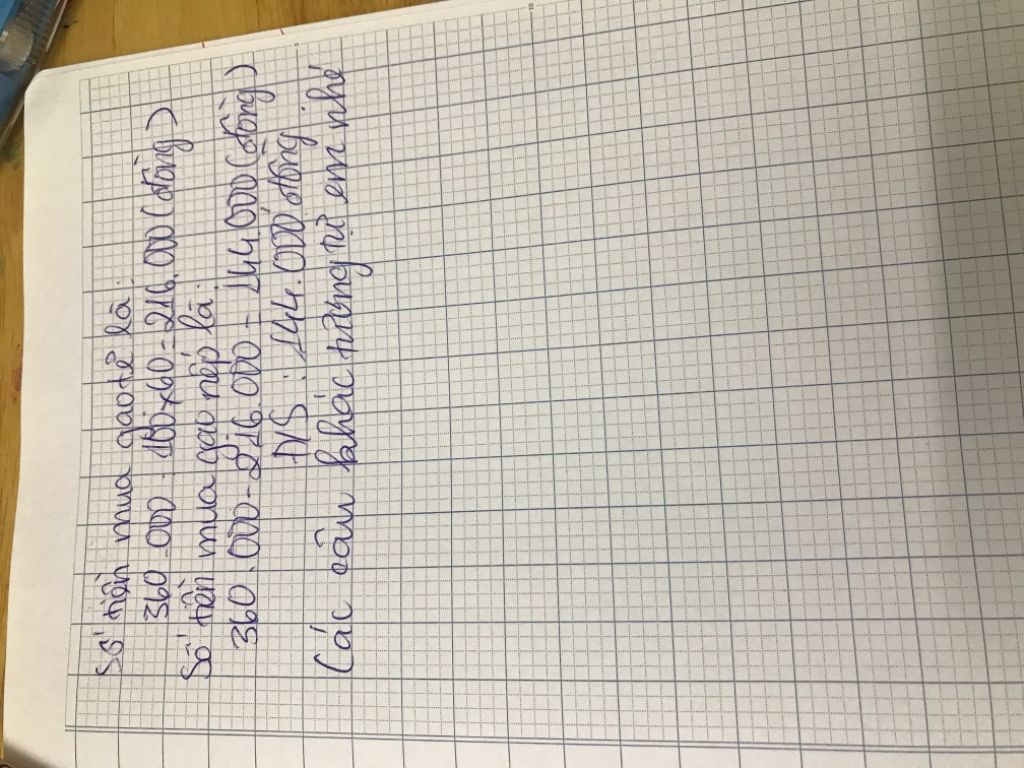 Số tiền mua gạo tẻ là:
360.000 : 100 x 60 = 216.000 (đồng)
Số tiền mua gạo nếp là:
360.000 - 216.000 = 144000 (đồng)
Đ/S: 144.000 đồng.
Các câu khác tương tự em nhé